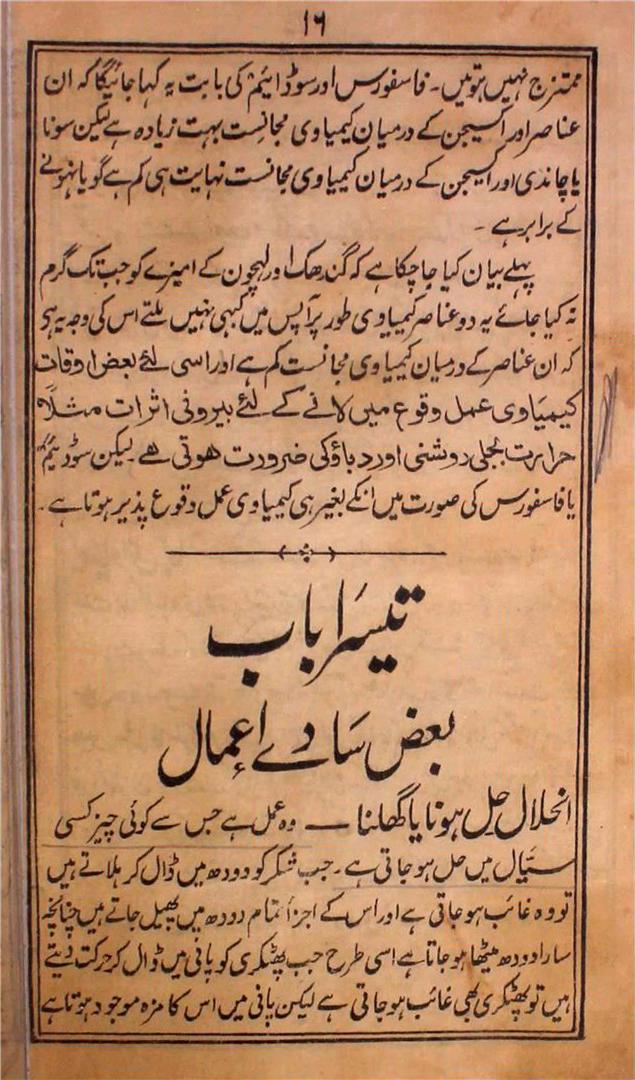 ۱۶
ممتزج نہیں ہوتیں۔ فاسفورس اور سوڈائیم کی بابت یہ کہا جائیگا کہ ان
عناصر اور اکسیجن کے درمیان کیمیاوی مجانست بہت زیادہ ہے لیکن سونا
یا چاندی اور اکسیجن کے درمیان کیمیاوی مجانست نہایت ہی کم ہے گویا نہونے
کے برابر ہے۔
پہلے بیان کیا جا چکا ہے کہ گندھک اور لہچون کے امیزے کو جب تک گرم
نہ کیا جائے یہ دو عناصر کیمیاوی طور پر آپس میں کبھی نہیں ملتے اس کی وجہ یہ ہی
کہ ان عناصر کے درمیان کیمیاوی مجانست کم ہے اور اسی لئے بعض اوقات
کیمیاوی عمل وقوع میں لانے کے لئے بیرونی اثرات مثلاً
حرارت بجلی روشنی اور دباؤ کی ضرورت ہوتی ہے۔ لیکن سوڈیئم
یا فاسفورس کی صورت میں انکے بغیر ہی کیمیاوی عمل وقوع پذیر ہوتا ہے۔
تیسرا باب
بعض سادے اعمال
انحلال حل ہونا یا گھلنا — وہ عمل ہے جس سے کوئی چیز کسی
سیّال میں حل ہو جاتی ہے۔ جب شکر کو دودھ میں ڈال کر ہلاتے ہیں
تو وہ غائب ہو جاتی ہے اور اس کے اجزا تمام دودھ میں پھیل جاتے ہیں چنانچہ
سارا دودھ میٹھا ہو جاتا ہے اسی طرح جب پھٹکری کو پانی میں ڈال کر حرکت دیتے
ہیں تو پھٹکری بھی غائب ہو جاتی ہے لیکن پانی میں اس کا مزہ موجود ہوتا ہے